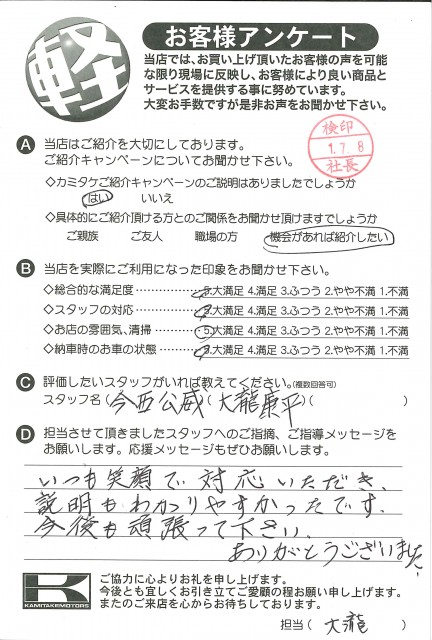 軽
お客様アンケート
当店では、お買い上げ頂いたお客様の声を可能
な限り現場に反映し、お客様により良い商品と
サービスを提供する事に努めています。
大変お手数ですが是非お声をお聞かせ下さい。
検印
1.7.8
社長
A 当店はご紹介を大切にしております。
ご紹介キャンペーンについてお聞かせ下さい。
◇カミタケご紹介キャンペーンのご説明はありましたでしょうか
はい いいえ
◇具体的にご紹介頂ける方とのご関係をお聞かせ頂けますでしょうか
ご親族 ご友人 職場の方 機会があれば紹介したい
B 当店を実際にご利用になった印象をお聞かせ下さい。
◇総合的な満足度 5.大満足 4.満足 3.ふつう 2.やや不満 1.不満
◇スタッフの対応 5.大満足 4.満足 3.ふつう 2.やや不満 1.不満
◇お店の雰囲気、清掃 5.大満足 4.満足 3.ふつう 2.やや不満 1.不満
◇納車時のお車の状態 5.大満足 4.満足 3.ふつう 2.やや不満 1.不満
C 評価したいスタッフがいれば教えてください。(複数回答可)
スタッフ名(今西公威)(大龍康平)( )
D 担当させて頂きましたスタッフへのご指摘、ご指導メッセージを
お願いします。応援メッセージもぜひお願いします。
いつも笑顔で対応いただき、
説明もわかりやすかったです。
今後も頑張って下さい。
ありがとうございました。
K
KAMITAKEMOTORS
ご協力に心よりお礼を申し上げます。
今後とも宜しくお引き立てご愛顧の程お願い申し上げます。
またのご来店を心からお待ちしております。
担当( 大龍 )